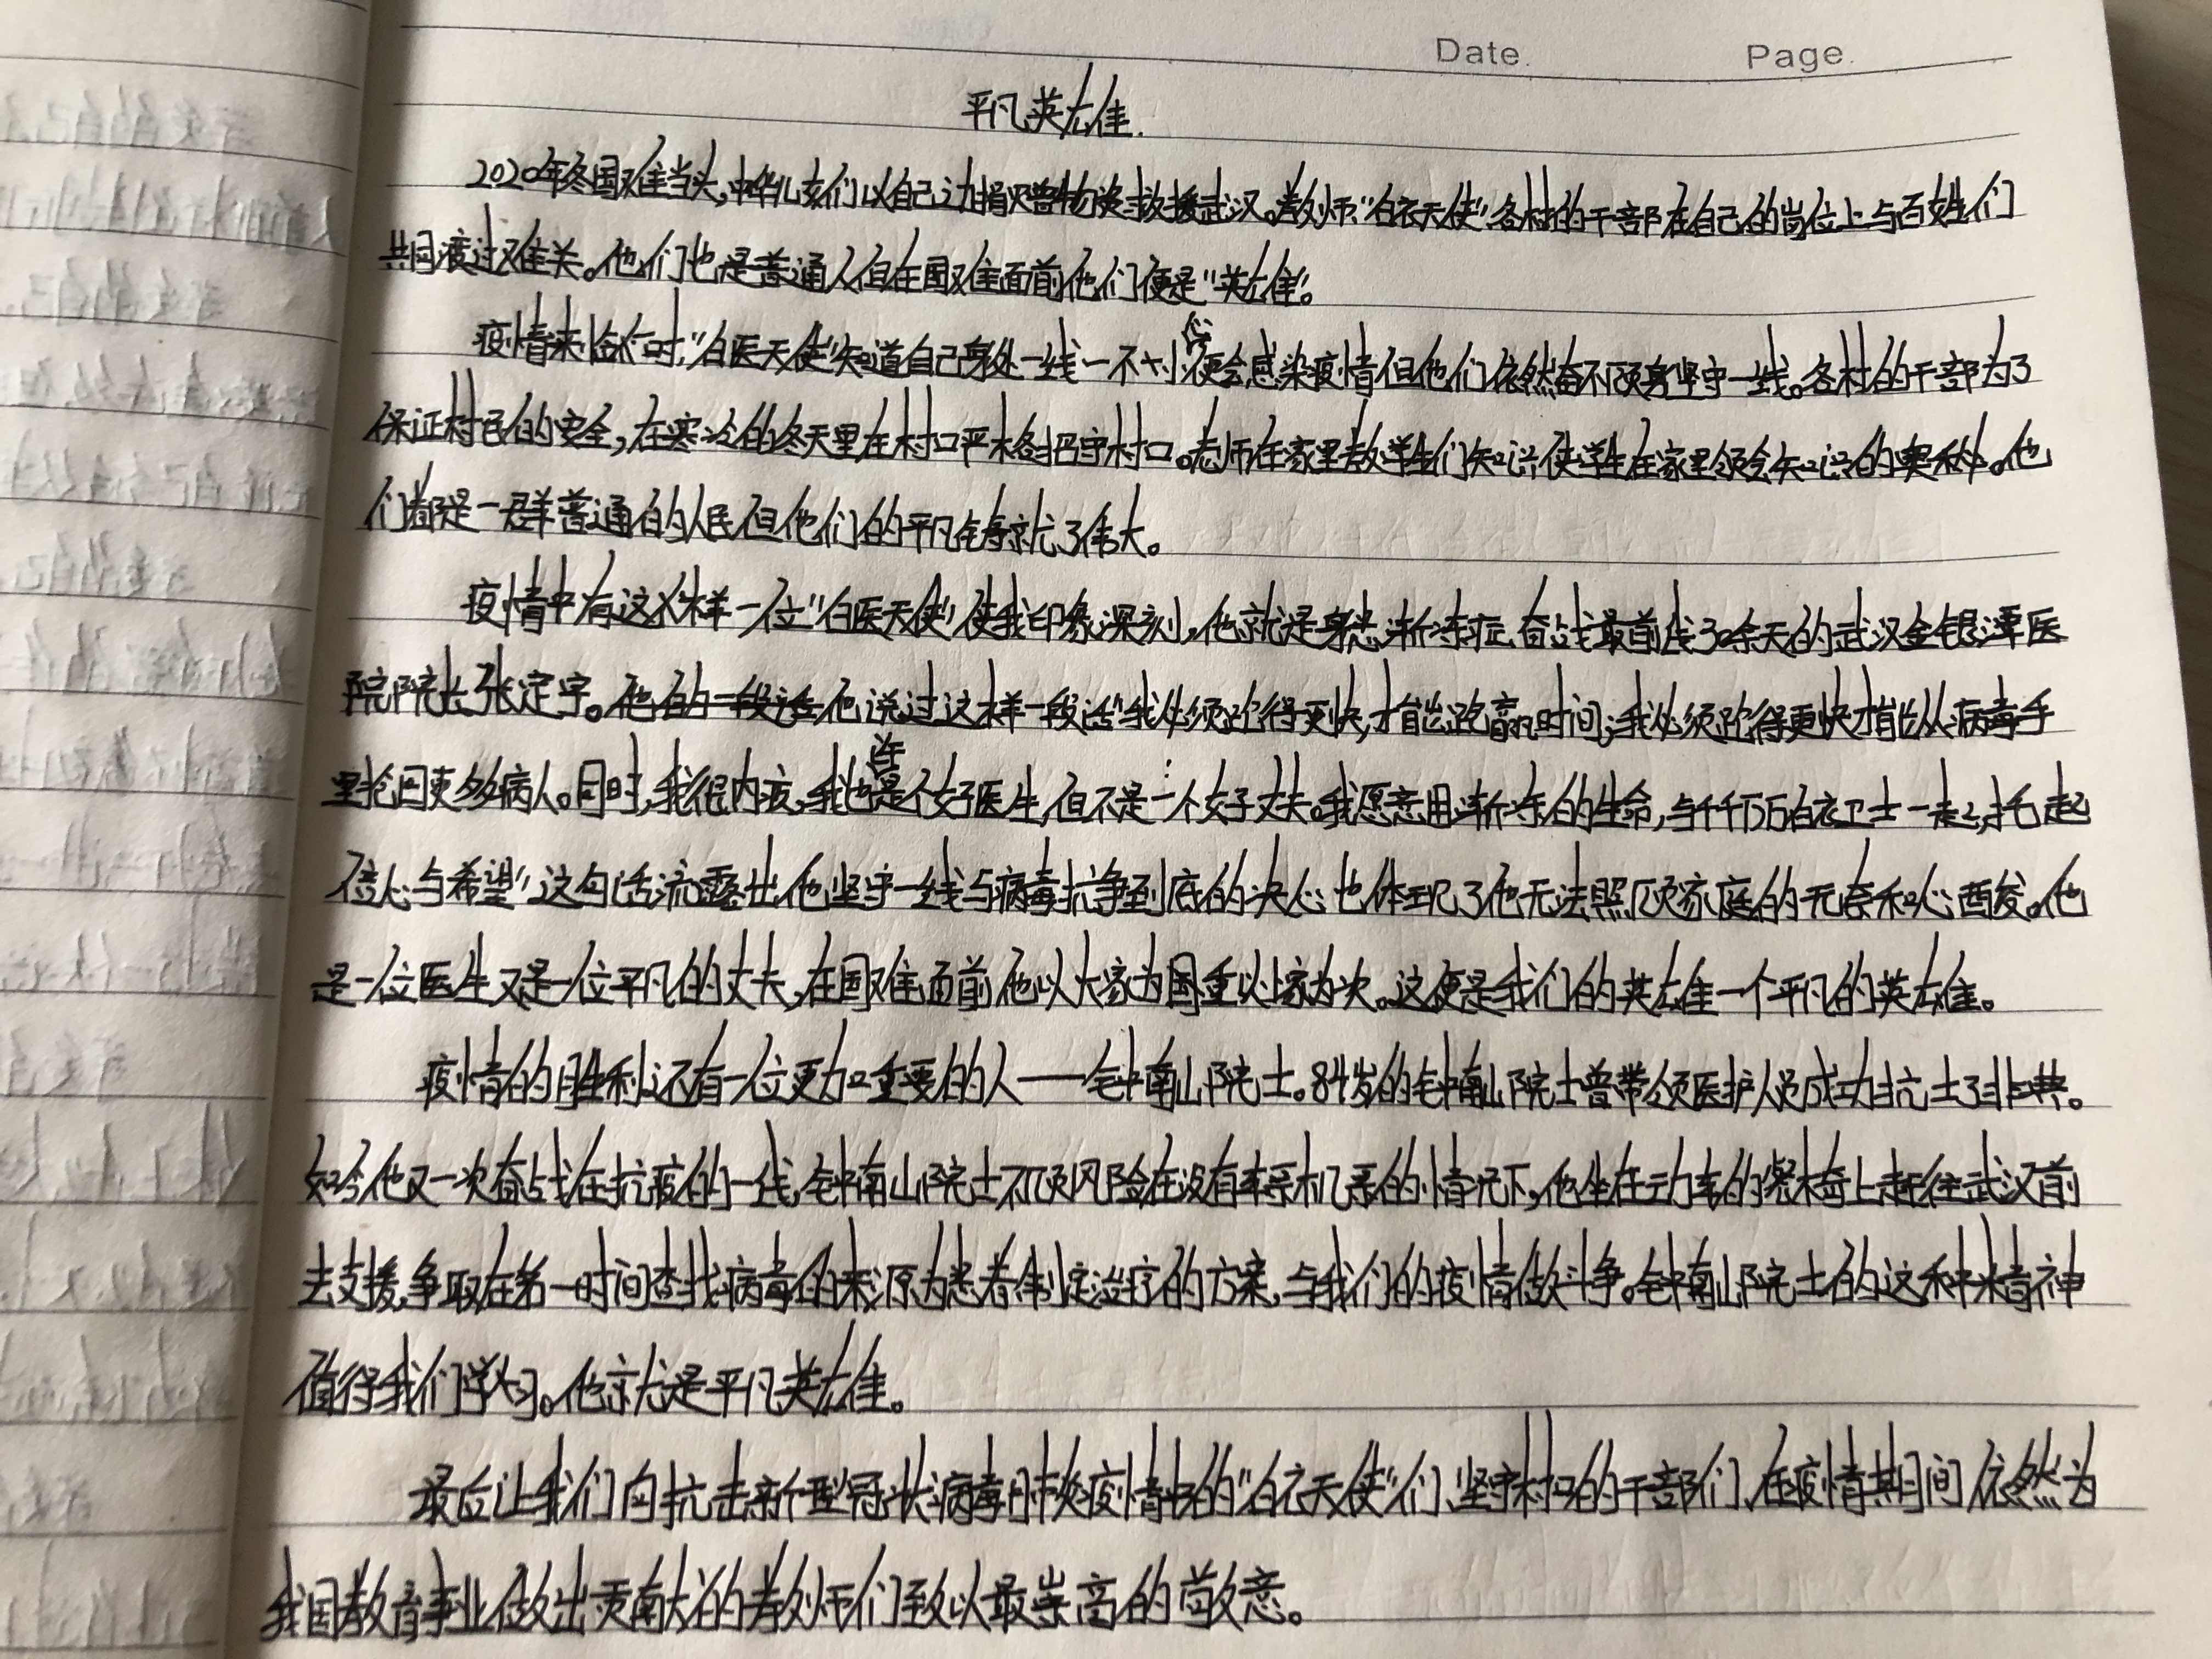 Date. Page.
平凡英雄.
2020年冬国难当头,中华儿女们以自己之力捐赠物资救援武汉。教师、“白衣天使”各村的干部在自己的岗位上与百姓们
共同渡过难关。他们也是普通人但在国难面前他们便是“英雄”。
疫情来临时,“白医天使”知道自己身处一线一不小心便会感染疫情但他们依然奋不顾身坚守一线。各村的干部为了
保证村民的安全,在寒冷的冬天里在村口严格把守村口。老师在家里教学生们知识使学生在家里领会知识的奥秘。他
们都是一群普通的人民但他们的平凡铸就了伟大。
疫情中有这样一位“白医天使”使我印象深刻。他就是身患渐冻症、奋战最前线30余天的武汉金银潭医
院院长张定宇。他说过这样一段话“我必须跑得更快,才能跑赢时间;我必须跑得更快才能从病毒手
里抢回更多病人。同时,我很内疚,我也许是个好医生,但不是一个好丈夫。我愿意用渐冻的生命,与千千万万白衣卫士一起,托起
信心与希望”这句话流露出他坚守一线与病毒抗争到底的决心也体现了他无法照顾家庭的无奈和心酸。他
是一位医生又是一位平凡的丈夫,在国难面前他以大家为国重以小家为次。这便是我们的英雄一个平凡的英雄。
疫情的胜利还有一位更加重要的人——钟南山院士。84岁的钟南山院士曾带领医护人员成功抗击了非典。
如今他又一次奋战在抗疫的一线,钟南山院士不顾风险在没有乘坐机票的情况下,他坐在动车的餐椅上赶往武汉前
去支援,争取在第一时间查找病毒的来源为患者制定治疗的方案,与我们的疫情做斗争。钟南山院士的这种精神
值得我们学习。他就是平凡英雄。
最后让我们向抗击新型冠状病毒肺炎疫情中的“白衣天使”们、坚守村口的干部们、在疫情期间依然为
我国教育事业做出贡献的教师们致以最崇高的敬意。